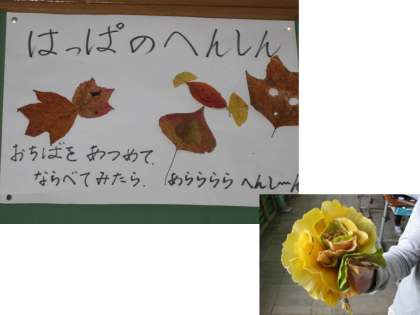 はっぱのへんしん
おちばを あつめて、
ならべてみたら、
あらららら へんし〜ん